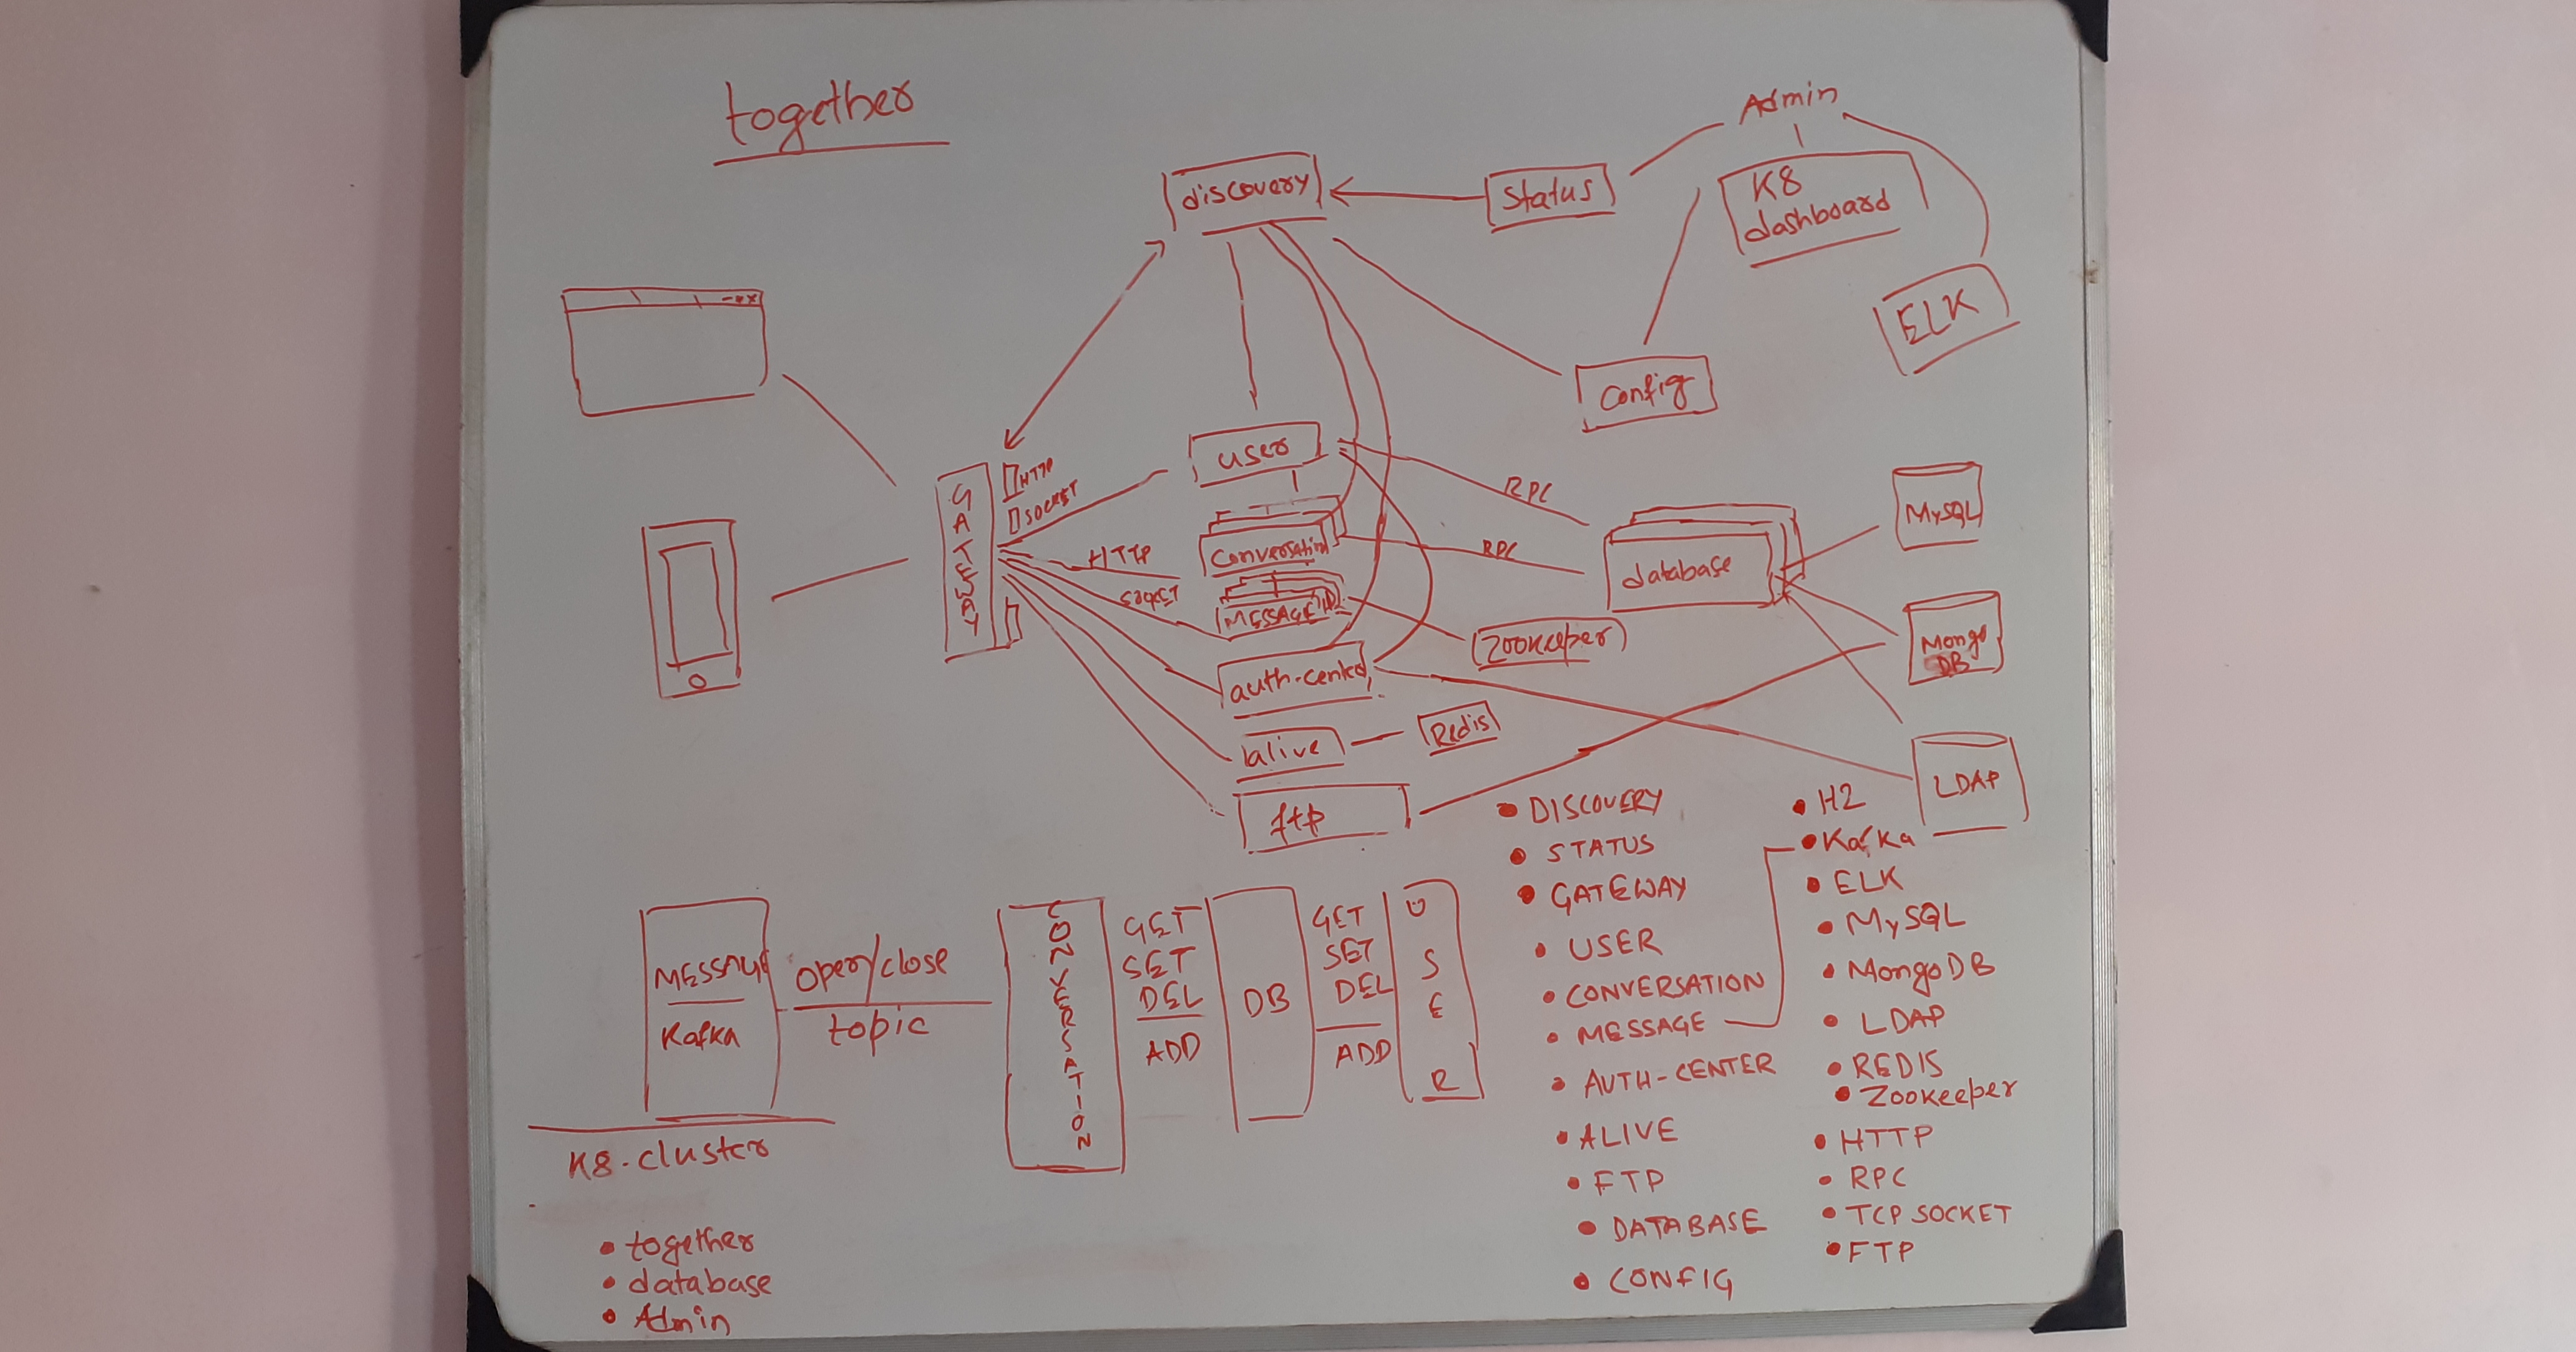 together
Admin
discovery
Status
K8
dashboard
ELK
config
GATEWAY
HTTP
SOCKET
user
HTTP
SOCKET
conversation
MESSAGE
auth-center
alive
ftp
RPC
RPC
Zookeeper
Redis
database
MySQL
Mongo
DB
LDAP
MESSAGE
Kafka
open/close
topic
CONVERSATION
GET
SET
DEL
ADD
DB
GET
SET
DEL
ADD
USER
K8-cluster
• together
• database
• Admin
• DISCOVERY
• STATUS
• GATEWAY
• USER
• CONVERSATION
• MESSAGE
• AUTH-CENTER
• ALIVE
• FTP
• DATABASE
• CONFIG
• H2
• Kafka
• ELK
• MySQL
• MongoDB
• LDAP
• REDIS
• Zookeeper
• HTTP
• RPC
• TCP SOCKET
• FTP